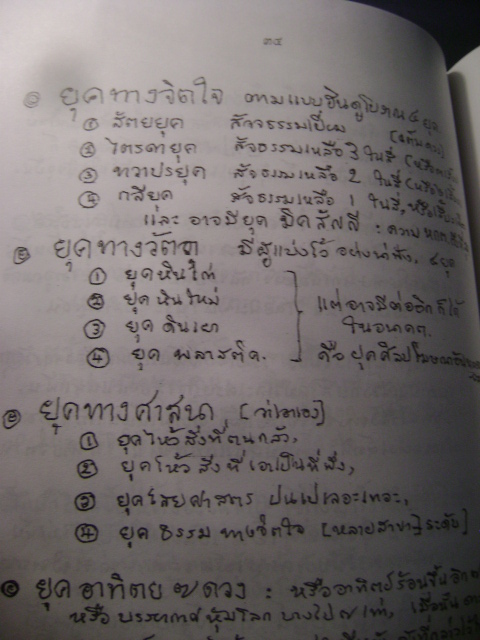 ๓๔
ยุคทางจิตใจ ตามแบบฮินดูโบราณ ๔ ยุค
① สัตยยุค สัจจธรรมเปี่ยม
② ไตรดายุค สัจธรรมเหลือ 3 ในสี่
③ ทวาปรยุค สัจธรรมเหลือ 2 ในสี่
④ กลียุค สัจธรรมเหลือ 1 ในสี่, หรือ
และ อาจมียุค มิคสัญญี : ความ
ยุคทางวัตถุ มีผู้แบ่งไว้ อย่างน่าฟัง, ๔ยุค
① ยุคหินเก่า
② ยุคหินใหม่ แต่อาจมีต่ออีกก็ได้
③ ยุค ดินเผา ในอนาคต.
④ ยุค พลาสติค. คือ ยุคศีลปโฆษณา
ยุคทางศาสนา [ว่าเอาเอง]
① ยุคไหว้สิ่งที่ตนกลัว,
② ยุคไหว้สิ่งที่เอาเป็นที่พึ่ง,
③ ยุคไสยศาสตร ปนเปเลอะเทอะ,
④ ยุค ธรรม ทางจิตใจ [หลายสาขา]ระดับ]
ยุคอาทิตย ๗ ดวง : หรืออาทิตย์ร้อนขึ้นอีก
หรือ บรรยากาศหุ้มโลก บางไป ๗ เท่า,